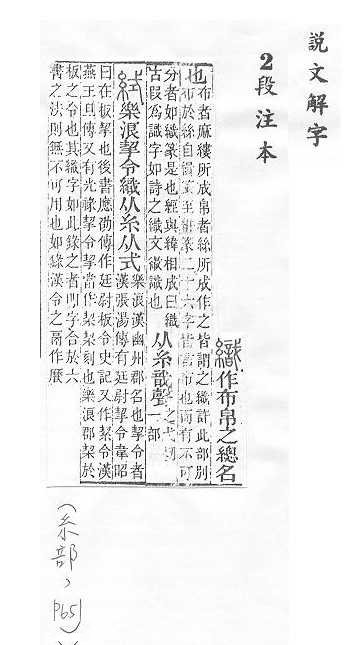 説文解字
2段注本
織作布帛之總名
也布者麻縷所成帛者絲所成作之皆謂之織許此部別
布於絲自至二十六字皆帛也而有不可
分者如織篆是也經與緯相成曰織从糸戠聲之弋切一部
古叚爲識字如詩之織文徽識也
絍樂浪挈令織从糸从式樂浪漢幽州郡名也挈令者漢張湯傳有廷尉挈令韋昭
曰在板挈也後書應劭傳作廷尉板令史記又作絜令漢
燕王旦傳又有光祿挈令挈當作栔栔刻也樂浪郡栔於
板之令也其織字如此錄之者明字合於六
書之法則無不可用也如錄漢令之鬲作㽁
(糸部,
P65)